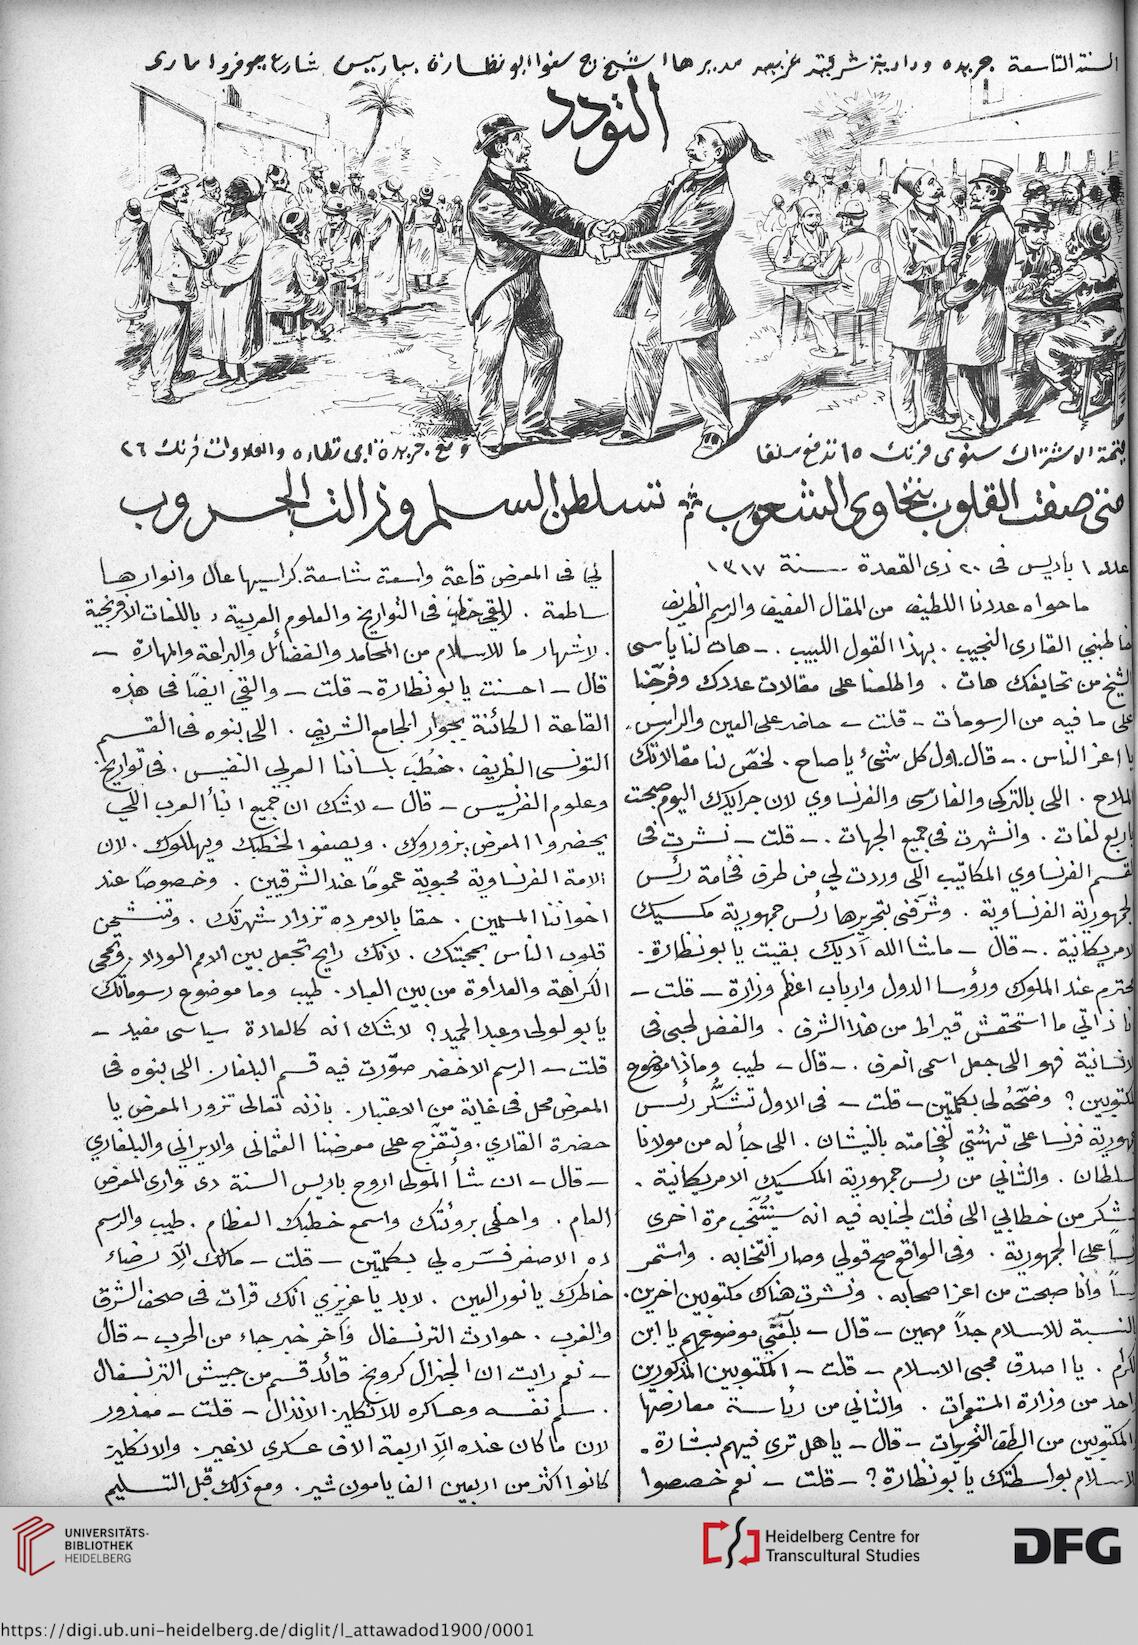 السنة التاسعة جريدة ودادية شرقية غربية مديرها الشيخ ج سنوا ابو نظارة بباريس شارع جوفروا مارى
التودد
قيمة الاشتراك سنوى فرنك ١٥ تدفع سلفا
ومع جريدة ابى نظاره والعلاوات فرنك ٢٦
متى صفت القلوب بتخاوى الشعوب تتسلطن السلم وزالت الحروب
عدد ١ باريس فى ٢٠ ذى القعدة سنة ١٣١٧
ما حواه عددنا اللطيف من المقال العفيف والرسم الظريف
خاطبني القارى النجيب . بهذا القول اللبيب . ـ هات لنا ياسى
الشيخ من تحايفك هات . واطلعنا على مقالات عددك وفرّجنا
على ما فيه من الرسومات ـ قلت ـ حاضر على العين والراس .
يا اعز الناس . ـ قال . اول كل شئ يا صاح . لخصّ لنا مقالاتك
الملاح . اللى بالتركى والفارسى والفرنساوي لان جرايدك اليوم صبحت
باربع لغات . وانشهرت فى جميع الجهات . ـ قلت ـ نشرت فى
القسم الفرنساوي المكاتيب اللى وردت لي من طرف فخامة رئس
الجمهورية الفرنساوية . وشرّفنى بتحريرها رئس جمهورية مكسيك
الامريكانية . ـ قال ـ ماشا الله آديك بقيت يا بو نظارة .
محترم عند الملوك ورؤسا الدول وارباب اعظم وزارة ـ قلت ـ
انا ذاتي ما استحقش قيراط من هذا الشرف . والفضل لحبى فى
الانسانية فهو اللى جعل اسمى انعرف . ـ قال ـ طيب وماذا موضوع
المكتوبين ؟ وضّحهُ لى بكلمتين ـ قلت ـ فى الاول تشكُّر رئس
جمهورية فرنسا على تهنئتي لفخامته بالنيشان . اللى جأ له من مولانا
السلطان . والثاني من رئس جمهورية المكسيك الامريكانية .
يشكر من خطابي اللى قلت لجنابه فيه انه سينتخب مرة اخرى
رئساً على الجمهورية . وفى الواقع صح قولي وصار انتخابه . واستمر
رئساً وأنا صبحت من اعز اصحابه . ونشرت هناك مكتوبين اخرين .
بالنسبة للاسلام جداً مهمين ـ قال ـ بلّغنى موضوعهم يا ابن
الكرام . يا اصدق محبى الاسلام ـ قلت ـ المكتوبين المذكورين
واحد من وزارة المستعمرات . والثاني من رئاسة معارضها
المكتوبين من الطف التحريرات ـ قال ـ يا هل ترى فيهم بشارة .
للاسلام بواسطتك يا بو نظارة ؟ ـ قلت ـ نعم خصصوا
لي فى المعرض قاعة واسعة شاسعة . كراسيها عال وانوارها
ساطعة . لالقي خطب فى التواريخ والعلوم العربية . باللغات الافرنجية
. لاشهار ما للاسلام من المحامد والفضائل والبراعة والمهارة ـ
قال ـ احسنت يا بو نظارة ـ قلت ـ والقي ايضاً فى هذه
القاعة الكائنة بجوار الجامع الشريف . اللى بنوه فى القسم
التونسى الظريف . خطب بلساننا العربي النفيس . فى تواريخ
وعلوم الفرنسيس ـ قال ـ لاشك ان جميع ابنأ العرب اللي
يحضروا المعرض يزوروك . ويصغوا لخطبك ويهللوك . لان
الامة الفرنساوية محبوبة عموماً عند الشرقيين . وخصوصاً عند
اخواننا المسلمين . حقا بالامر ده تزداد شهرتك . وتنشحن
قلوب الناس بمحبتك . لانك رايح تجعل بين الامم الوداد . وتمحى
الكراهة والعداوة من بين العباد . طيب وما موضوع رسوماتك
يا بو لولى وعبد الحميد ؟ لاشك انه كالعادة سياسى مفيد ـ
قلت ـ الرسم الاخضر صوّرت فيه قسم البلغار . اللى بنوه فى
المعرض محل فى غاية من الاعتبار . باذنه تعالى تزور المعرض يا
حضرة القاري . وتتفرّج على معرضنا العثمانى والايراني والبلغاري
ـ قال ـ ان شأ المولى اروح باريس السنة دى وارى المعرض
العام . واحظى برؤيتك واسمع خطبك العظام . طيب والرسم
ده الاصفر فسّره لي بكلمتين ـ قلت ـ مالك الّا رضاء
خاطرك يا نور العين . لابد يا عزيزي انك قرات فى صحف الشرق
والغرب . حوادث الترنسفال وآخر خبر جاء من الحرب ـ قال
ـ نعم رايت ان الجنرال كرونج قائد قسم من جيش الترنسفال
. سلم نفسه وعساكره للانكليز الانذال ـ قلت ـ معذور
لان ما كان عنده الّا اربعة الاف عسكرى لا غير . والانكليز
كانوا اكثر من اربعين الف يامون شير . ومع ذلك قبل التسليم
UNIVERSITÄTS-
BIBLIOTHEK
HEIDELBERG
Heidelberg Centre for
Transcultural Studies
DFG
https://digi.ub.uni-heidelberg.de/diglit/l_attawadod1900/0001